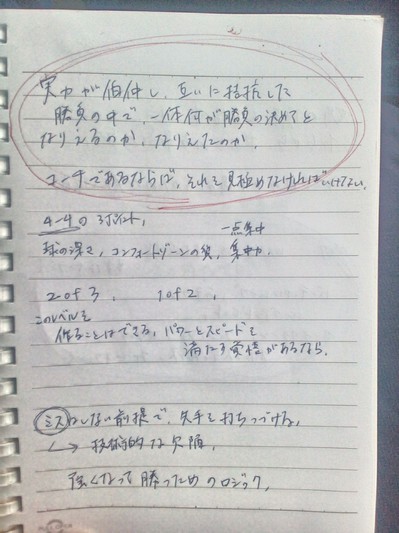 実力が伯仲し、互いに拮抗した
勝負の中で、一体何が勝負の決めてと
なりえるのか、なりえたのか。
コーチであるならば、それを見極めなければいけない。
4-4の3ポイント、
一点集中
球の深さ、コンフォートゾーンの幅、集中力。
2 of 3 , 1 of 2 ,
このレベルを
作ることはできる、パワーとスピードを
満たす覚悟があるなら。
ミスはしない前提で、先手を打ちつづける。
↳ 技術的な欠陥。
強くなって勝つためのロジック。